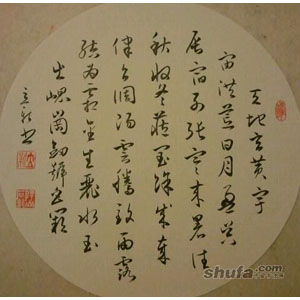 天地玄黄宇
宙洪荒日月盈昃
辰宿列張寒来暑往
秋收冬藏閏餘成歲
律吕調陽雲騰致雨露
結為霜金生麗水玉
出崐崗劍號巨闕
shufa.com